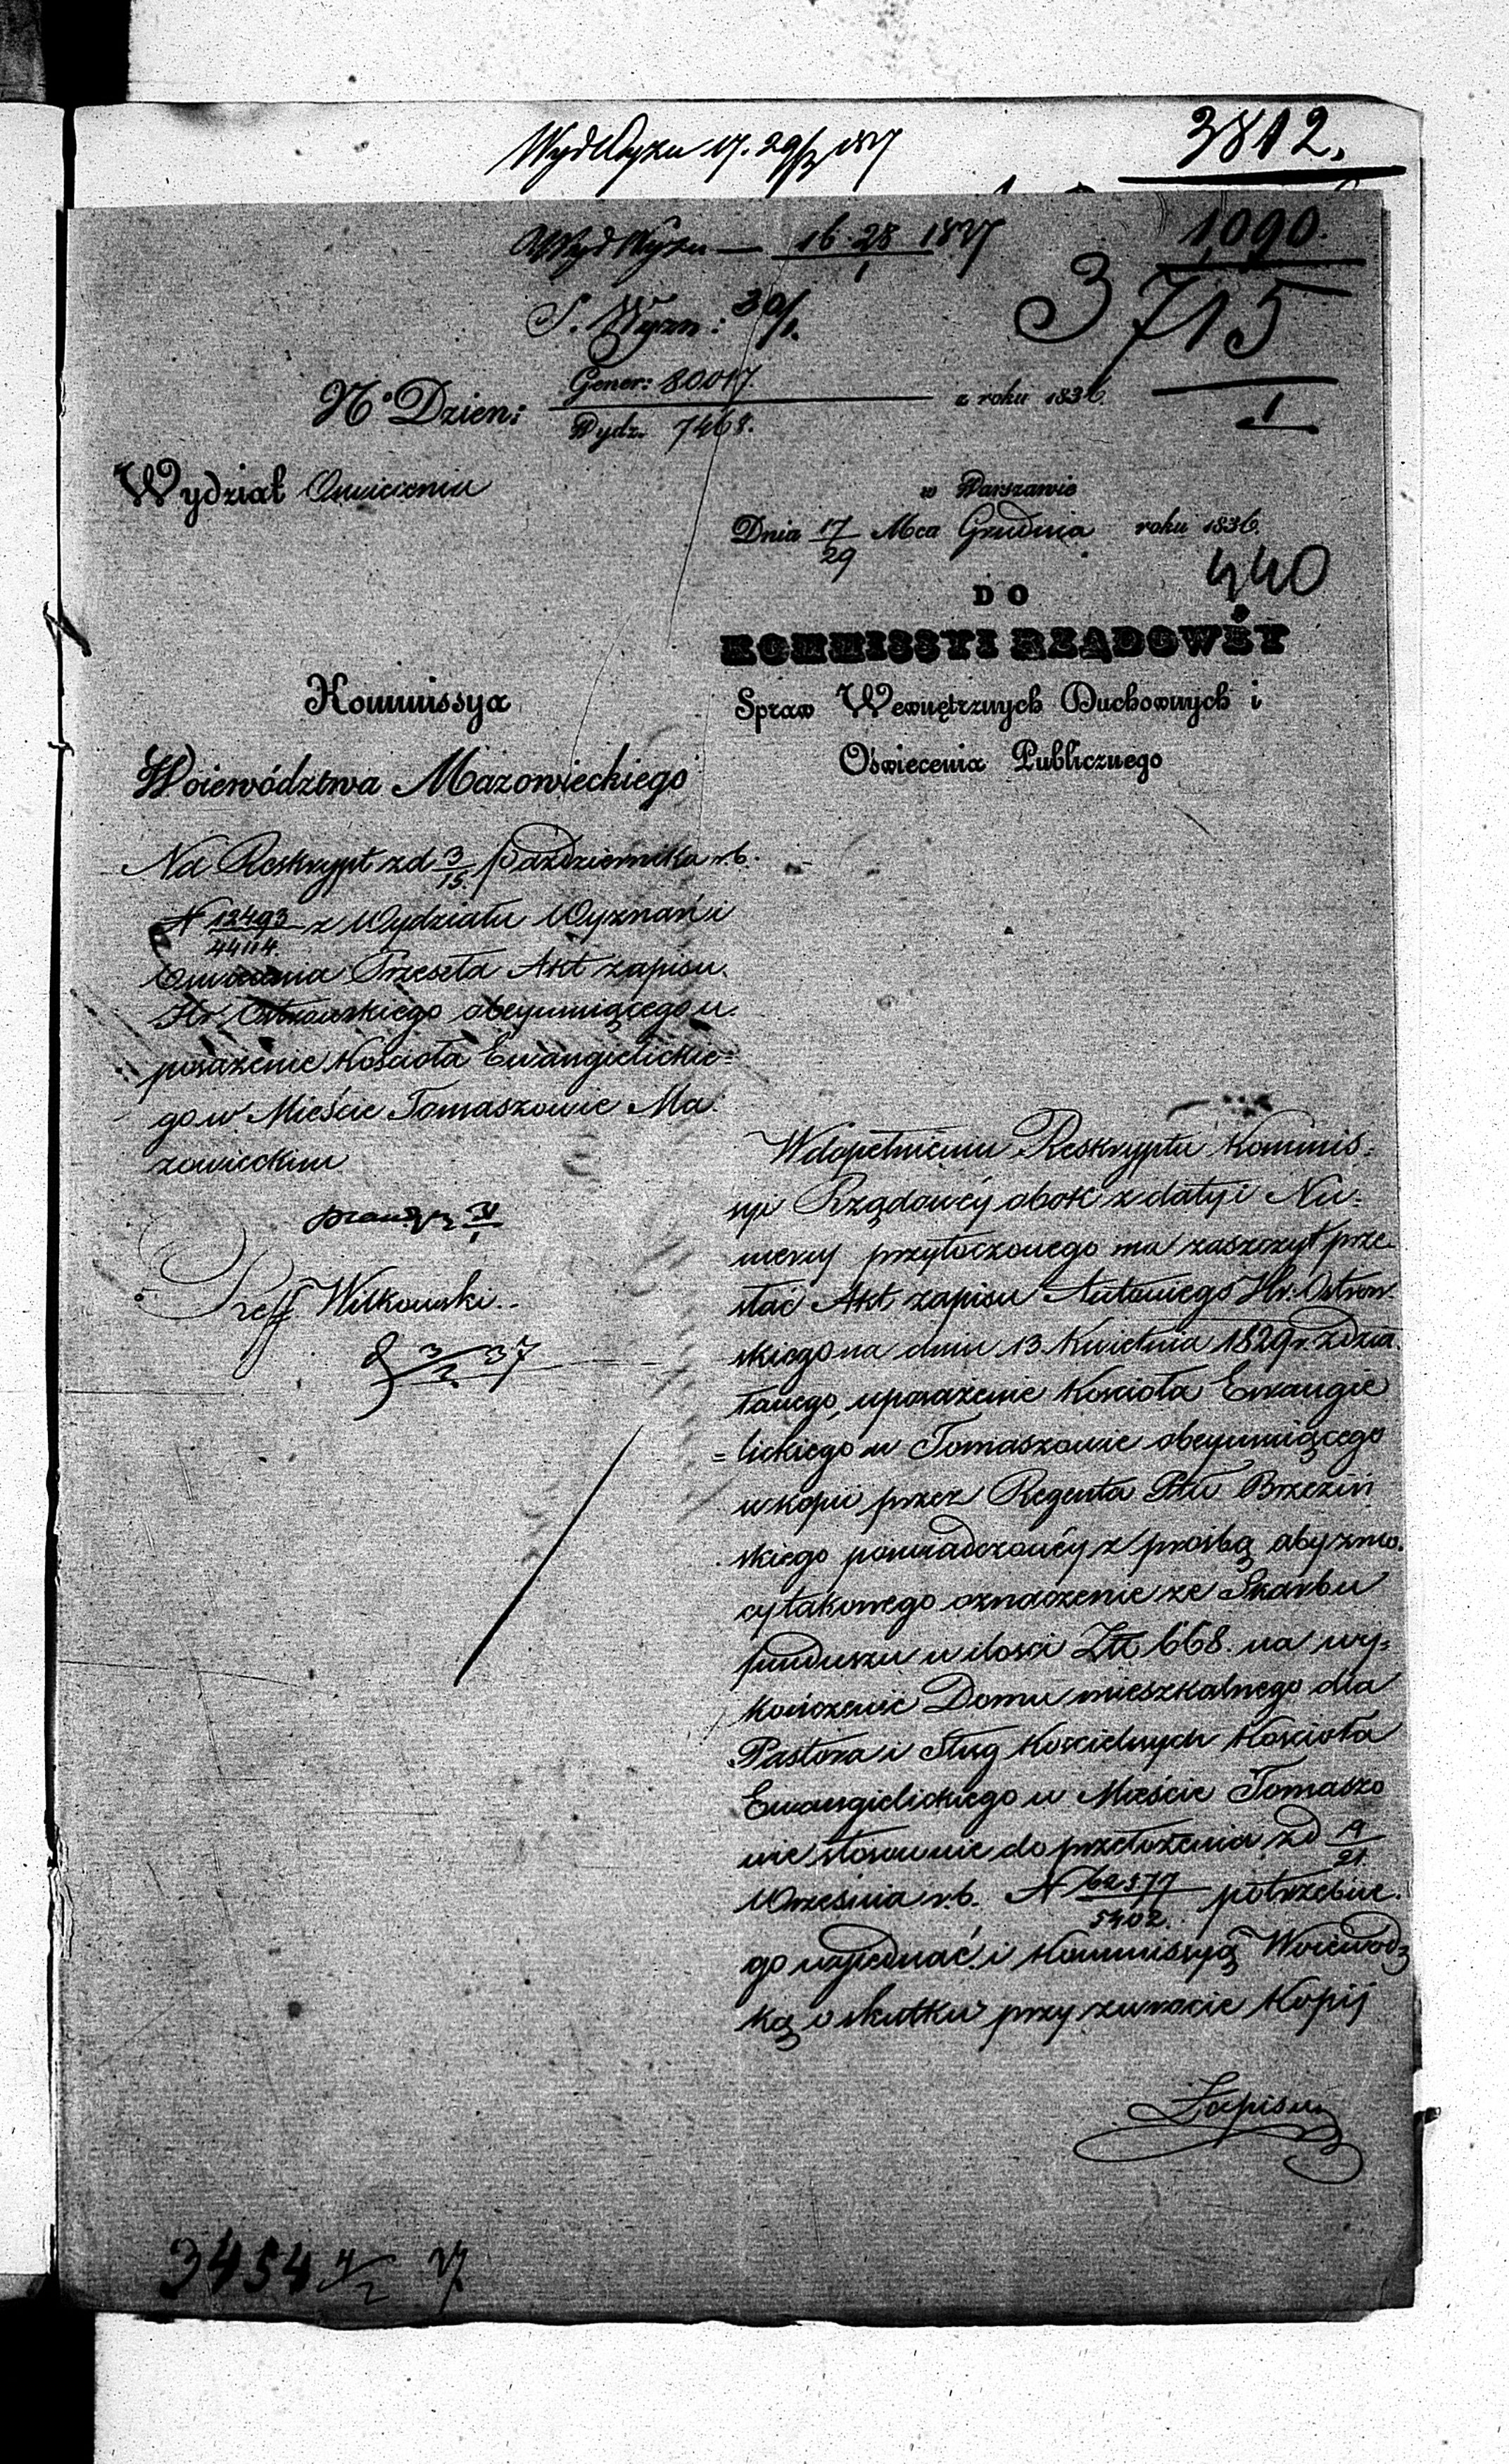 3812.
Wyd Wyzn 17. 29/3 1837
Wyd Wyzn — 16. 28 1837
1
1090.
S. Wyzn: 30/1.
3715
1
N.° Dzien: Gener: 80017. z roku 1836.
Wydz. 7468.
Wydział Oswiecenia
w Warszawie
Dnia 17/29 Mca Grudnia roku 1836.
440
DO
KOMMISSYI RZĄDOWÉY
Spraw Wewnętrznych Duchownych i
Oświecenia Publicznego
Kommissya
Woiewództwa Mazowieckiego
Na Reskrypt z d 3/15. Października r.b.
N 12493/44114. z Wydziału Wyznań i
Oswiecenia Przeseła Akt zapisu
Hr. Ostrowskiego obeymuiącego u
posażenie Kościoła Ewangielickie=
go w Mieście Tomaszowie Ma
zowieckim
Reff. Witkowski.
3/2 37
Wdopełnieniu Reskryptu Kommis=
syi Rządowéy obok z daty i Nu=
meru przytoczonego ma zaszczyt prze
słać Akt zapisu Antoniego Hr. Ostrow
skiego na dniu 13 Kwietnia 1829 r. zdzia
łanego, uposażenie Kościoła Ewangie
=lickiego w Tomaszowie obeymuiącego
w kopii przez Regenta Ptu Brzeziń
skiego poświadczonéy z prośbą aby zmo
cy takowego oznaczenie ze Skarbu
funduszu w ilości Złt 668. na wy=
kończenie Domu mieszkalnego dla
Pastora i Sług Kościelnych Kościoła
Ewangielickiego w Mieście Tomaszo
wie stosownie do przełożenia z d 19/21.
Września r.b. N 62577/5402. potrzebne
go wyjednać i Kommissyą Woiewodz
ką o skutku przy zwrocie Kopij
Zapisu
3454 4/2 37